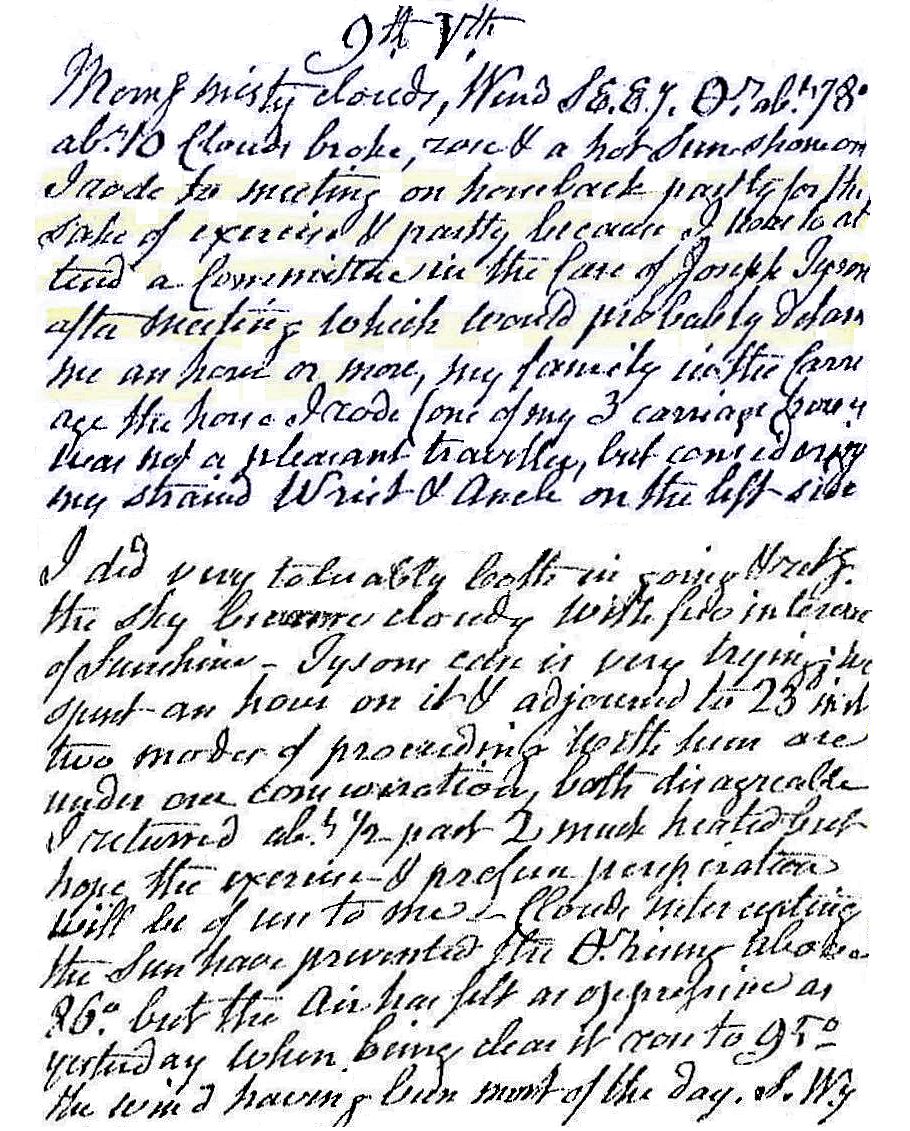 9th Vth
Morng misty clouds, Wind S.E.Ey. Θr. abt. 78°
abt. 10 Clouds broke, rose & a hot Sun shone on
I rode to meeting on horseback partly for the
sake of exercise & partly because I was to at
tend a Committee in the Case of Joseph Tyson
after meeting which would probably detain
me an hour or more, my family in the Carri
age the horse I rode (one of my 3 carriage horses
was not a pleasant traveller, but considering
my strained Wrist & Ancle on the left side
I did very tolerably both in going & retg.
the sky became cloudy with few intervals
of Sunshine - Tysons case is very trying; we
spent an hour on it & adjourned to 23 inst
two modes of proceeding with him are
under our consideration, both disagreable
I returned abt. 1/2 past 2 much heated but
hope the exercise & profuse perspiration
will be of use to me - Clouds intercepting
the Sun have prevented the Θr. rising above
86° but the Air has felt as oppressive as
yesterday when being clear it rose to 95°
the wind having been most of the day. S. Wy